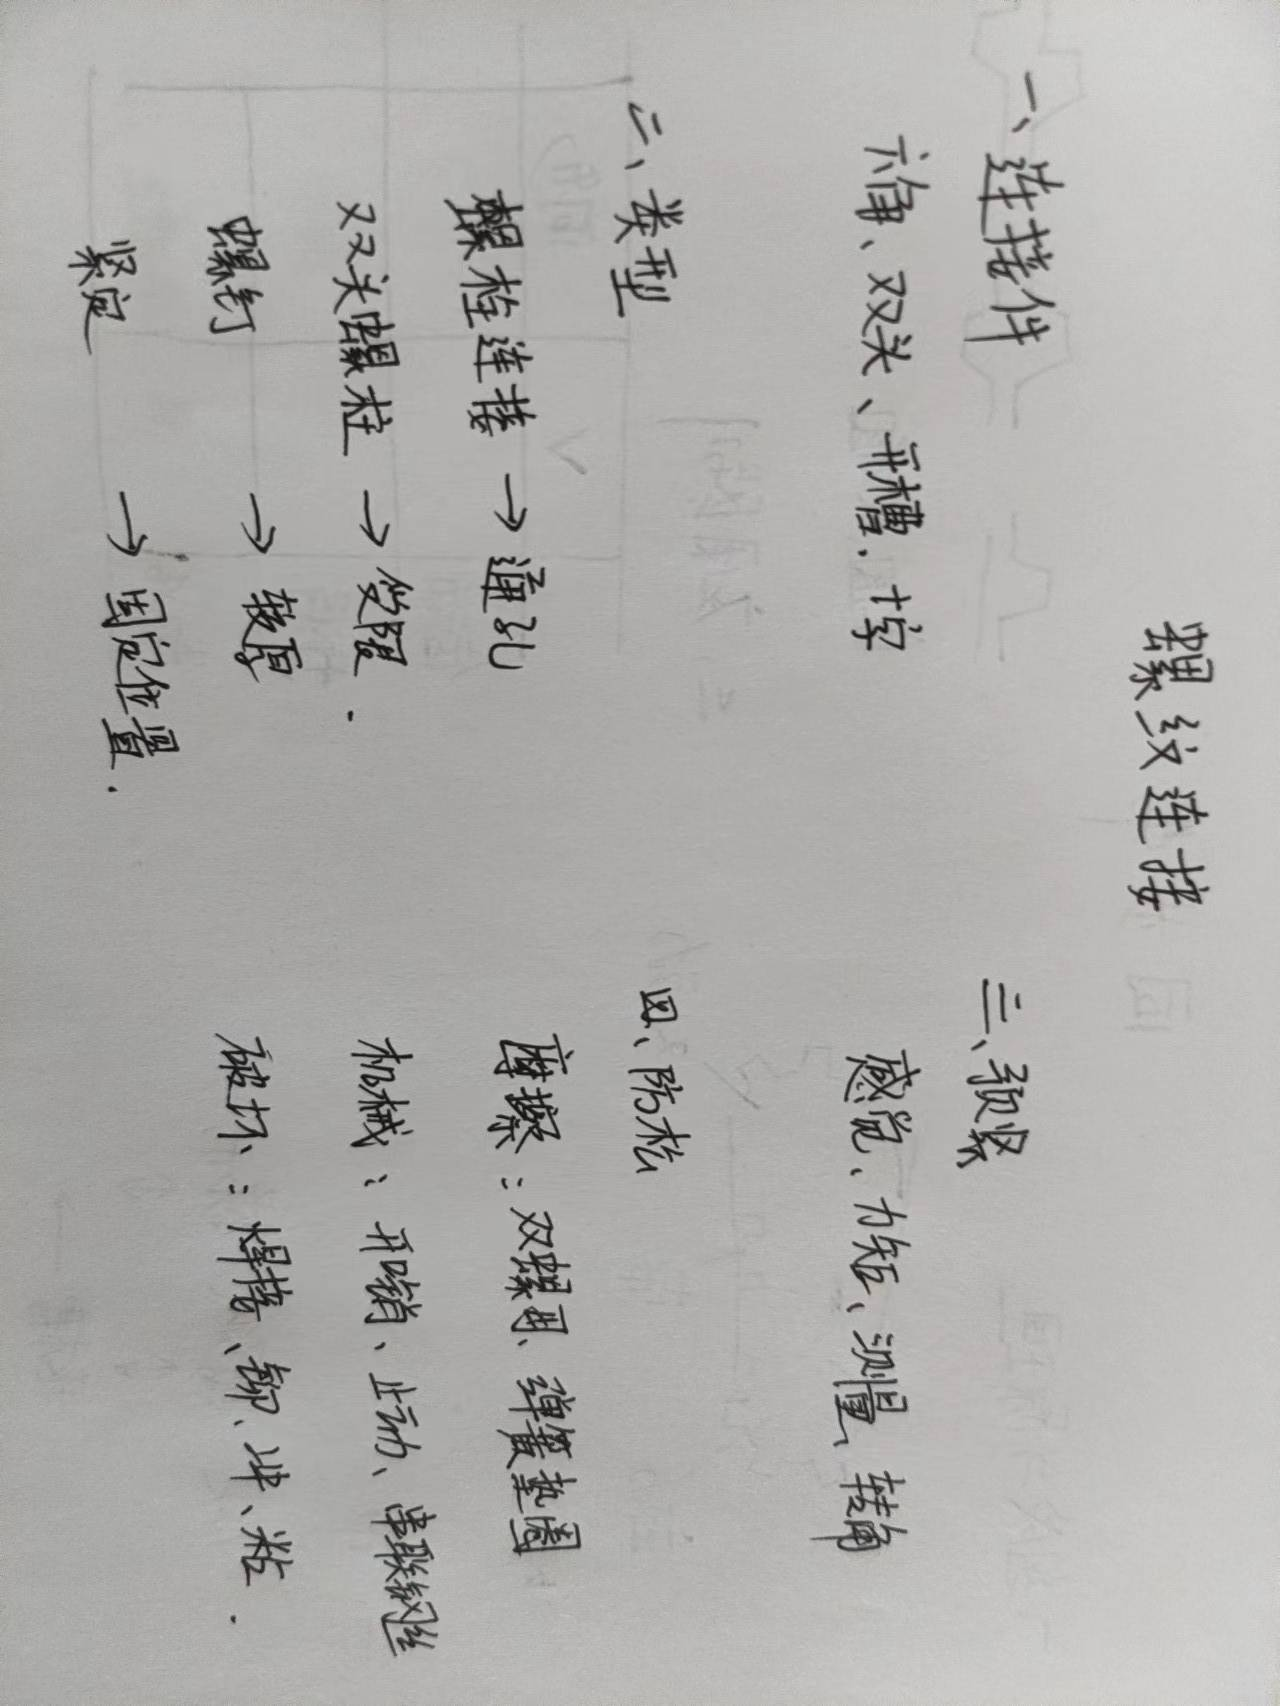 螺纹连接
一、连接件
六角、双头、开槽.十字
二、类型
螺栓连接 → 通孔
双头螺柱 → 受限.
螺钉 → 较厚
紧定 → 固定位置.
三、预紧
感觉、力矩、测量、转角
四、防松
摩擦:双螺母、弹簧垫圈
机械:开口销、止动、串联钢丝
破坏:焊接、铆、冲、粘.